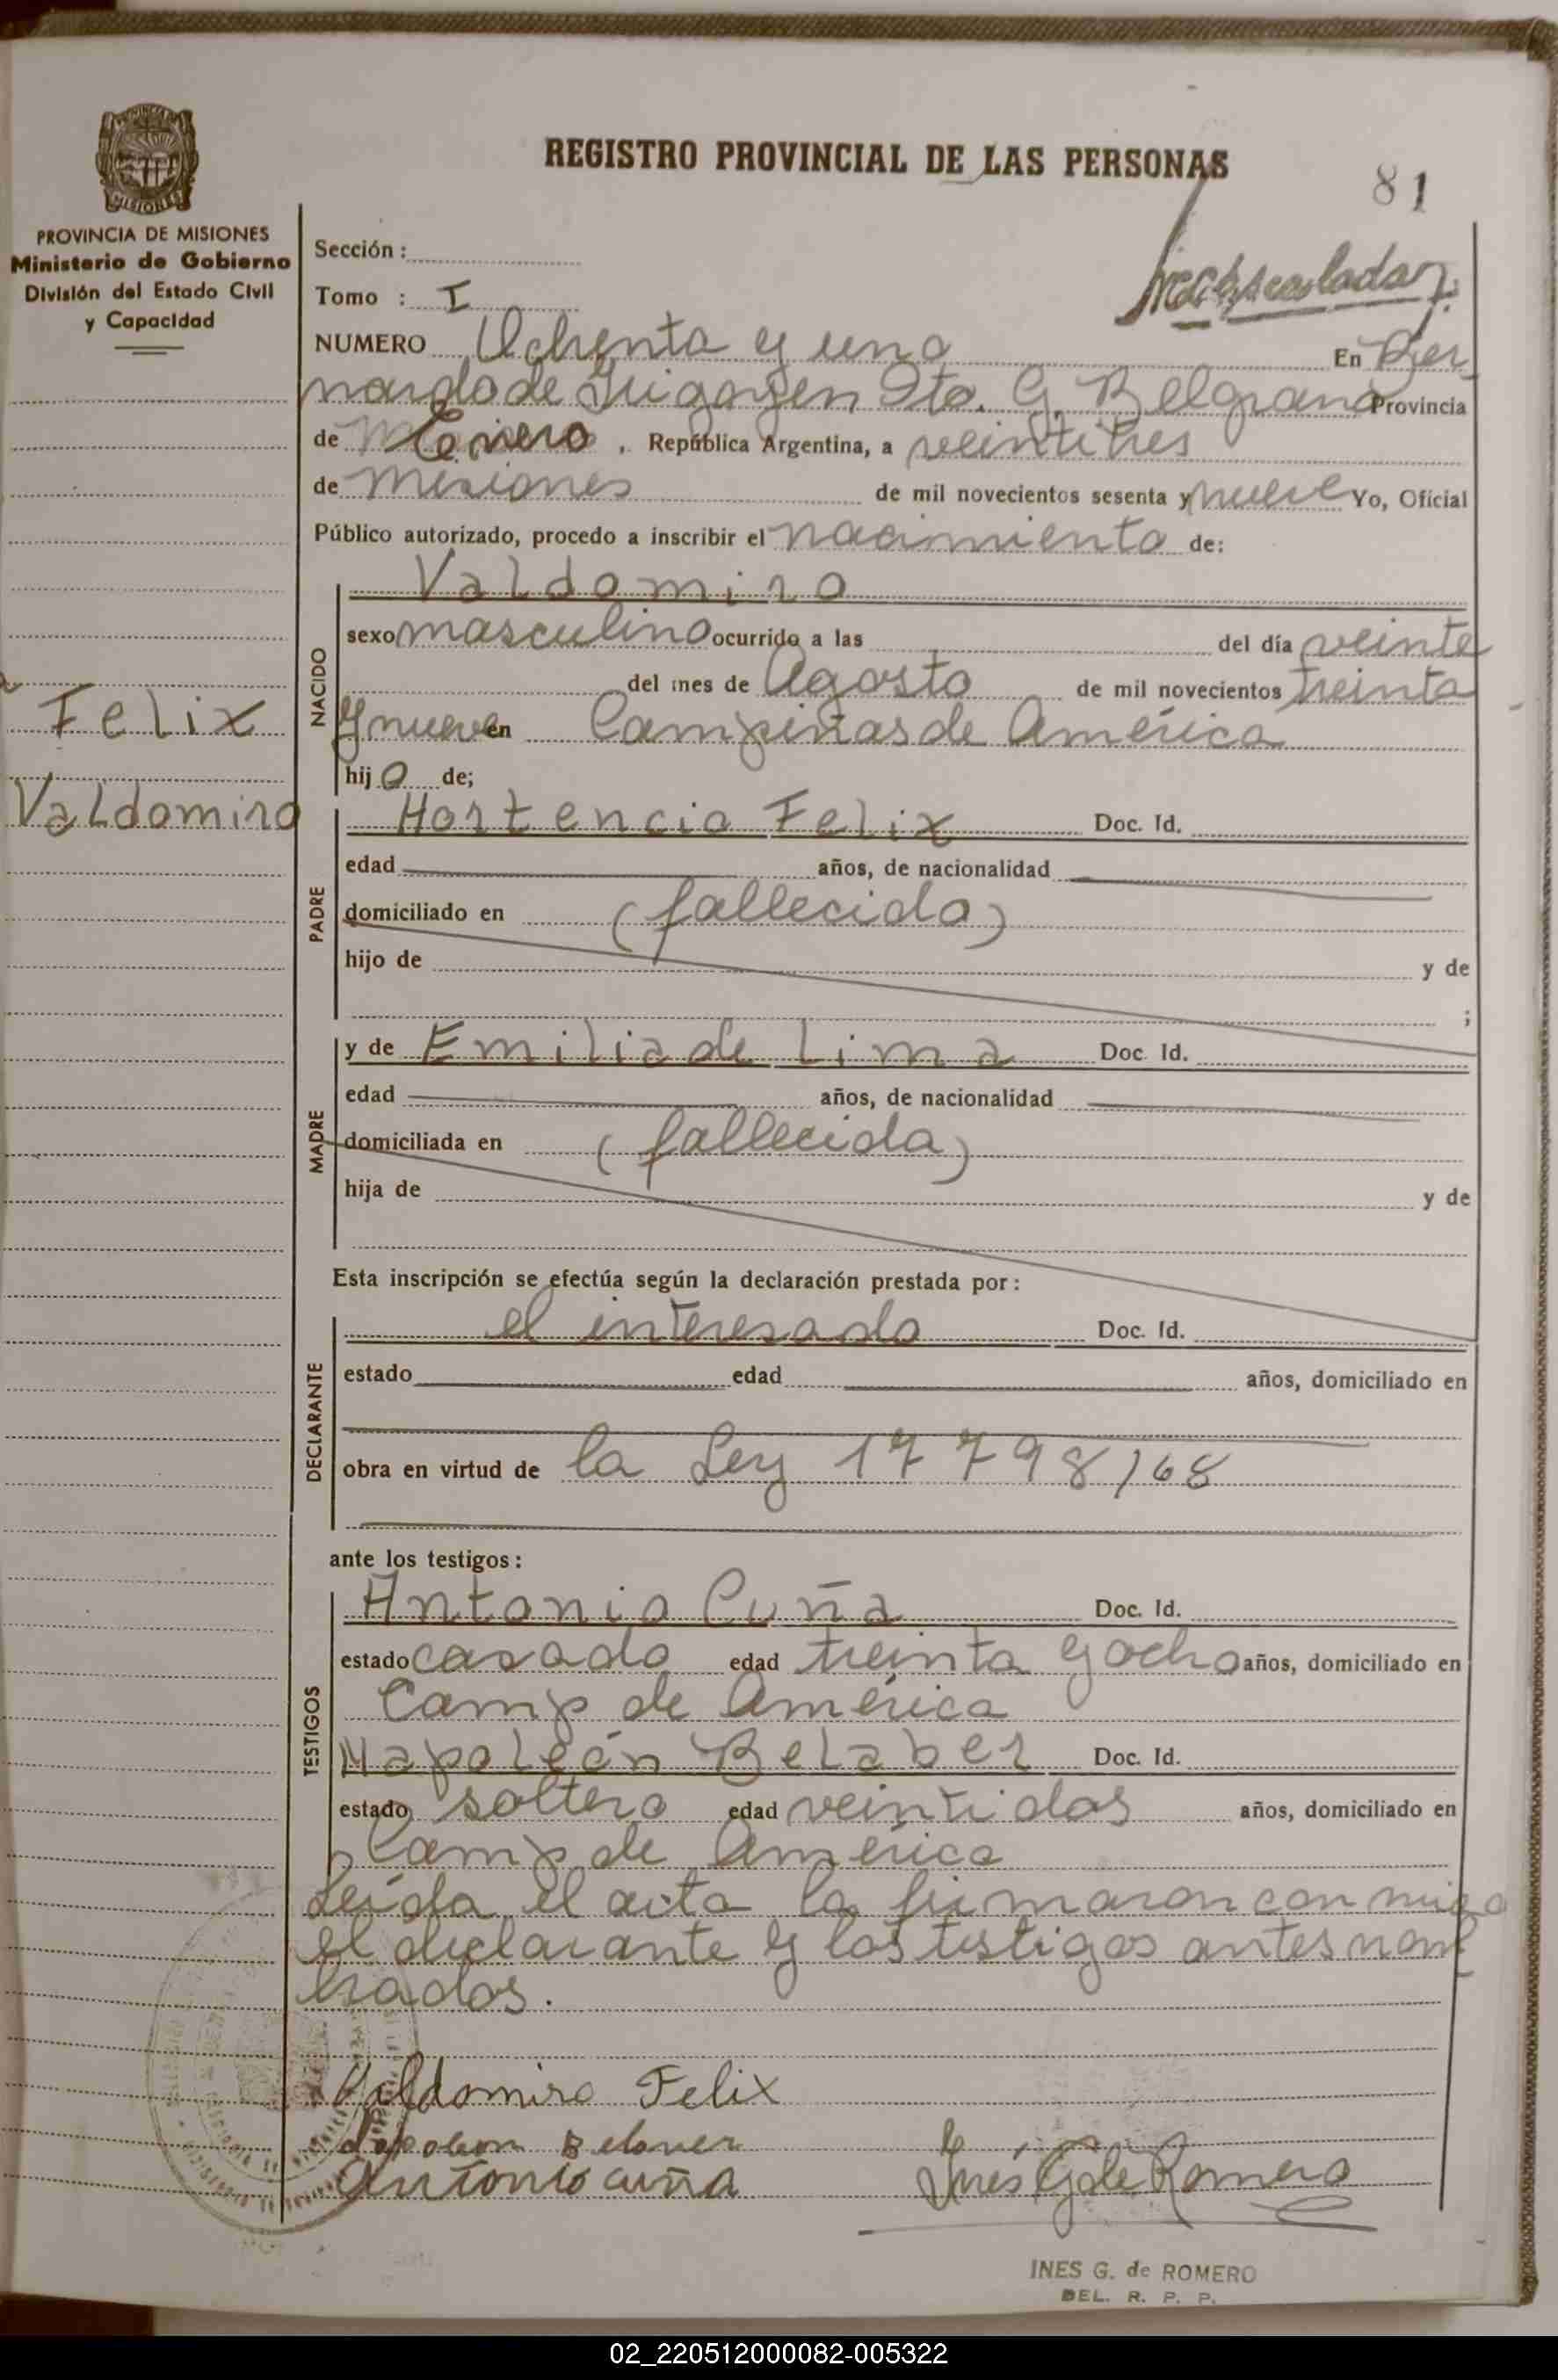 REGISTRO PROVINCIAL DE LAS PERSONAS
81
PROVINCIA DE MISIONES
Ministerio de Gobierno
División del Estado Civil
y Capacidad
Sección :
Tomo : I
NUMERO Ochenta y uno En Ber
nardo de Irigoyen Dto. G. Belgrano Provincia
de Enero, República Argentina, a veintitres
de Misiones de mil novecientos sesenta y nueve Yo, Oficial
Público autorizado, procedo a inscribir el nacimiento de:
Felix
Valdomiro
NACIDO
Valdomiro
sexo masculino ocurrido a las del día veinte
del mes de Agosto de mil novecientos treinta
y nueve en Campiñas de América
hijo de;
PADRE
Hortencio Felix Doc. Id.
edad años, de nacionalidad
domiciliado en (fallecido)
hijo de y de
;
MADRE
y de Emilia de Lima Doc. Id.
edad años, de nacionalidad
domiciliada en (fallecida)
hija de y de
Esta inscripción se efectúa según la declaración prestada por :
DECLARANTE
el interesado Doc. Id.
estado edad años, domiciliado en
obra en virtud de la Ley 17798/68
ante los testigos :
TESTIGOS
Antonio Cuña Doc. Id.
estado casado edad treinta y ocho años, domiciliado en
Camp de América
Napoleón Belaber Doc. Id.
estado soltero edad veintidos años, domiciliado en
Camp de América
Leída el acta la firmaron con migo
el declarante y los testigos antes nom
brados.
Valdomiro Felix
Napoleon Belaver
Antonio cuña
Inés G de Romero
INES G. de ROMERO
DEL. R. P. P.
02_220512000082-005322